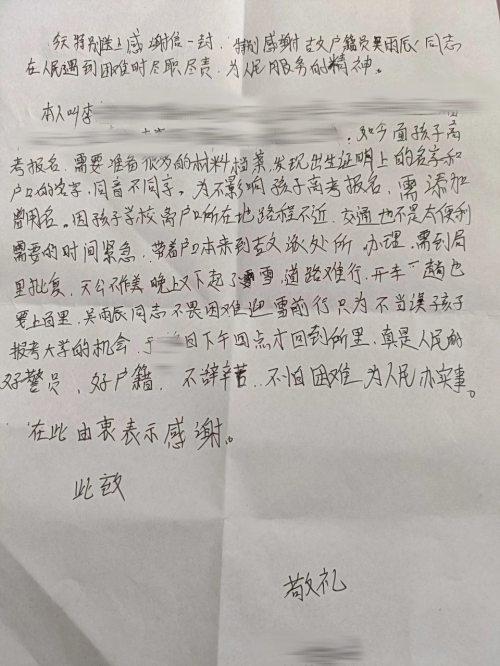 今天特别送上感谢信一封,特别感谢古交户籍员吴雨辰同志
在人民遇到困难时尽职尽责,为人民服务的精神。
本人叫李
,如今面孩子高
考报名,需要准备仪方的材料档案,发现出生证明上的名字和
户口的名字,同音不同字。为不影响孩子高考报名,需添加
曾用名。因孩子学校离户口所在地路程不近,交通也不是太便利
需要的时间紧急,带着户口本来到古交派处所办理,需到局
里批复,天公不作美晚上又下起了雪,道路难行,开车一趟也
要上百里,吴雨辰同志不畏困难迎雪前行只为不当误孩子
报考大学的机会,于 日下午四点才回到所里,真是人民的
好警员,好户籍,不辞辛苦,不怕困难为人民办实事。
在此由衷表示感谢。
此致
敬礼